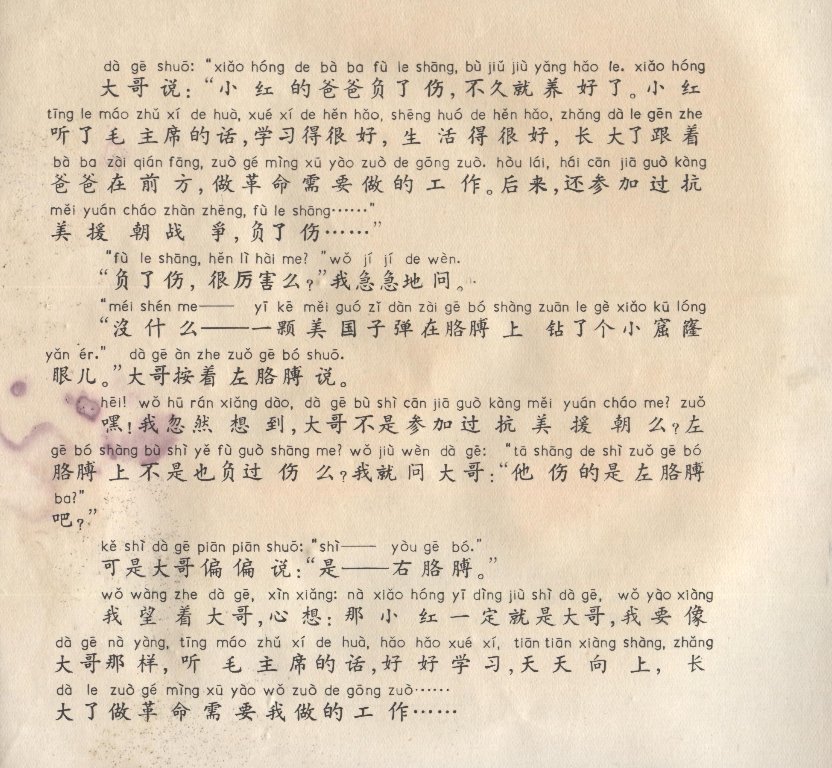 dà gē shuō: “xiǎo hóng de bà ba fù le shāng, bù jiǔ jiù yǎng hǎo le. xiǎo hóng
大哥说：“小红的爸爸负了伤，不久就养好了。小红
tīng le máo zhǔ xí de huà, xué xí de hěn hǎo, shēng huó de hěn hǎo, zhǎng dà le gēn zhe
听了毛主席的话，学习得很好，生活得很好，长大了跟着
bà ba zài qián fāng, zuò gé mìng xū yào zuò de gōng zuò. hòu lái, hái cān jiā guò kàng
爸爸在前方，做革命需要做的工作。后来，还参加过抗
měi yuán cháo zhàn zhēng, fù le shāng……”
美援朝战争，负了伤……”
“fù le shāng, hěn lì hài me? ”wǒ jí jí de wèn.
“负了伤，很厉害么？”我急急地问。
“méi shén me—— yī kē měi guó zǐ dàn zài gē bó shàng zuān le gè xiǎo kū lóng
“沒什么——一颗美国子弹在胳膊上钻了个小窟窿
yǎn ér.” dà gē àn zhe zuǒ gē bó shuō.
眼儿。”大哥按着左胳膊说。
hēi! wǒ hū rán xiǎng dào, dà gē bù shì cān jiā guò kàng měi yuán cháo me? zuǒ
嘿！我忽然想到，大哥不是参加过抗美援朝么？左
gē bó shàng bù shì yě fù guò shāng me? wǒ jiù wèn dà gē: “tā shāng de shì zuǒ gē bó
胳膊上不是也负过伤么？我就问大哥：“他伤的是左胳膊
ba?”
吧？”
kě shì dà gē piān piān shuō: “shì—— yòu gē bó.”
可是大哥偏偏说：“是——右胳膊。”
wǒ wàng zhe dà gē, xīn xiǎng: nà xiǎo hóng yī dìng jiù shì dà gē, wǒ yào xiàng
我望着大哥，心想：那小红一定就是大哥，我要像
dà gē nà yàng, tīng máo zhǔ xí de huà, hǎo hǎo xué xí, tiān tiān xiàng shàng, zhǎng
大哥那样，听毛主席的话，好好学习，天天向上，长
dà le zuò gé mìng xū yào wǒ zuò de gōng zuò……
大了做革命需要我做的工作……